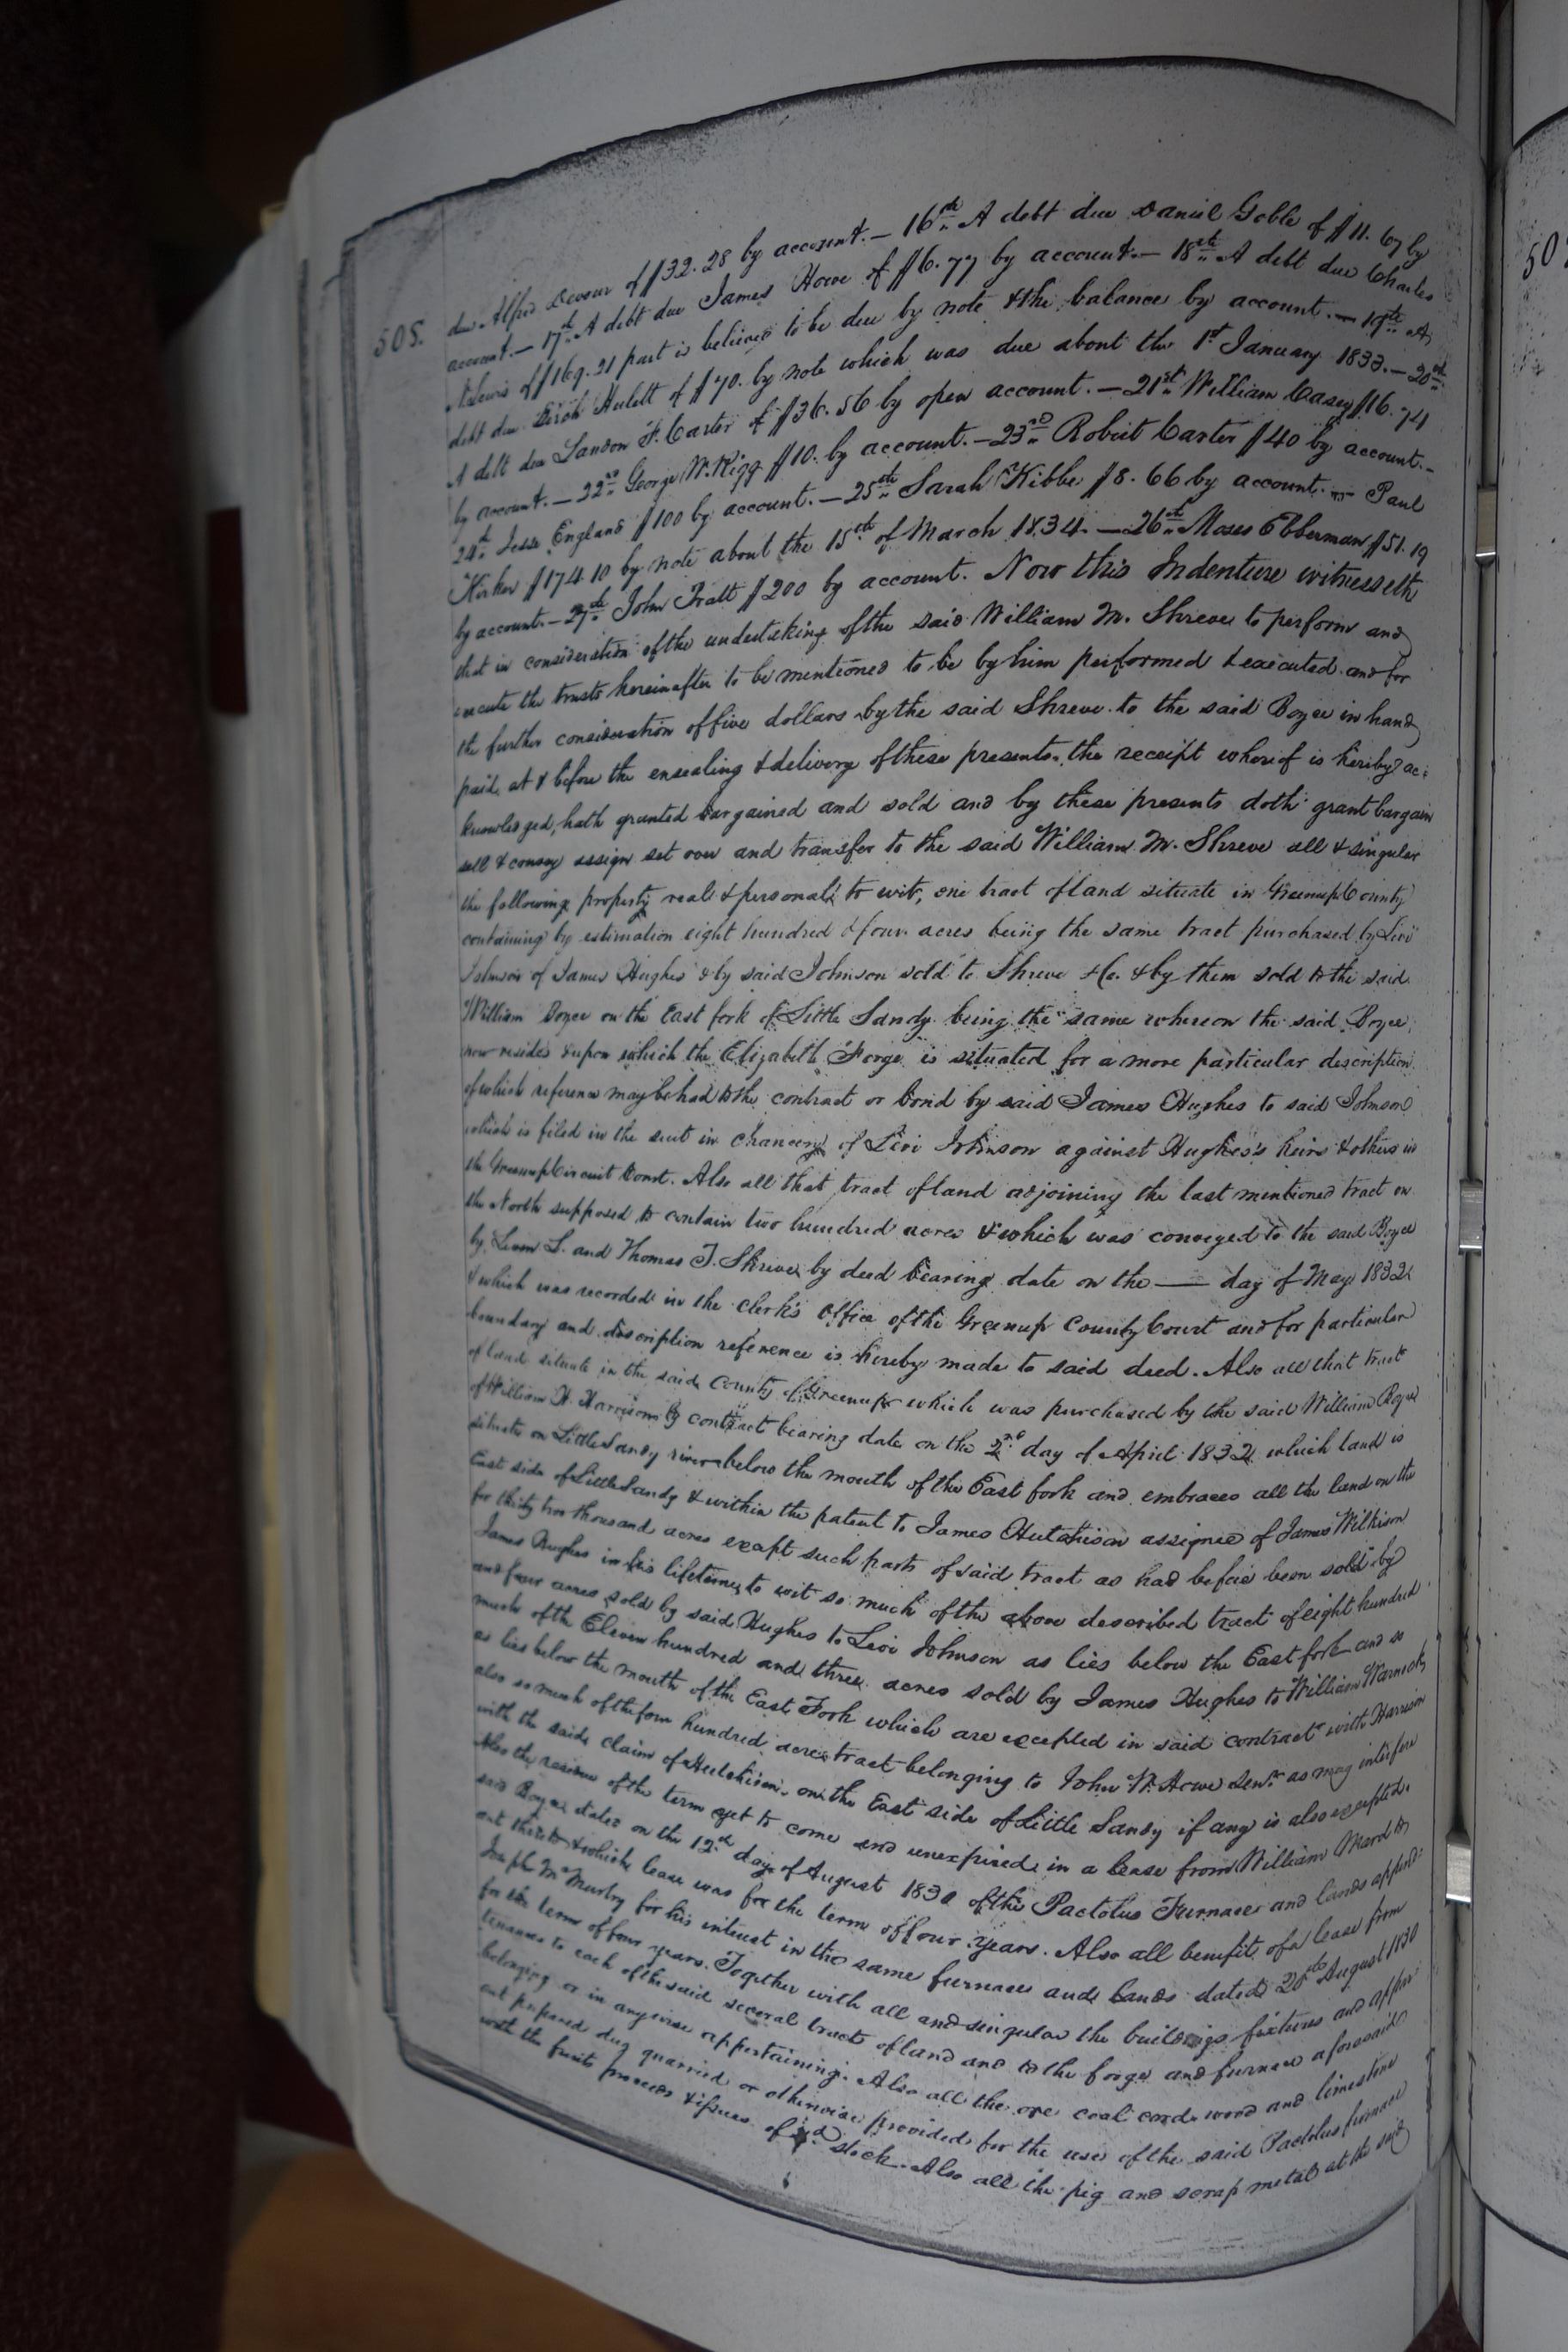 505.
due Alfred Devour of $32.28 by account. — 16th A debt due Daniel Goble of $11.67 by
account. — 17th A debt due James Howe of $6.77 by account. — 18th A debt due Charles
N. Lewis of $169.21 part is believed to be due by note & the balance by account. — 19th A
debt due Hulett of $70. by note which was due about the 1st January 1833. — 20th
A debt due Landon F. Carter of $36.56 by open account. — 21st William Casey $16.74
by account. — 22nd George W. Rigg $10. by account. — 23rd Robert Carter $40 by account. —
24th Jesse England $100 by account. — 25th Sarah Kibbe $8.66 by account. — Paul
Kirker $174.10 by note about the 15th of March 1834. — 26th Moses Ebberman $51.19
by account. — 27th John Pratt $200 by account. Now this Indenture witnesseth
that in consideration of the undertaking of the said William M. Shreve to perform and
execute the trusts hereinafter to be mentioned to be by him performed & executed and for
the further consideration of five dollars by the said Shreve to the said Boyce in hand
paid, at & before the ensealing & delivery of these presents, the receipt whereof is hereby ac:
knowledged, hath granted bargained and sold and by these presents doth grant bargain
sell & convey assign set over and transfer to the said William M. Shreve all & singular
the following property real & personal, to wit, one tract of land situate in Greenup County
containing by estimation eight hundred & four acres being the same tract purchased by Levi
Johnson of James Hughes & by said Johnson sold to Shreve & Co. & by them sold to the said
William Boyce on the East fork of Little Sandy being the same whereon the said Boyce
now resides & upon which the Elizabeth Forge is situated for a more particular description
of which reference may be had to the contract or bond by said James Hughes to said Johnson
which is filed in the suit in chancery of Levi Johnson against Hughes's heirs & others in
the Greenup Circuit Court. Also all that tract of land adjoining the last mentioned tract on
the North supposed to contain two hundred acres & which was conveyed to the said Boyce
by L. and Thomas T. Shreve by deed bearing date on the — day of May 1832
& which was recorded in the clerk's Office of the Greenup County Court and for particular
boundary and discription reference is hereby made to said deed. Also all that tract
of land situate in the said County of Greenup which was purchased by the said William Boyce
of William H. Harrison by contract bearing date on the 2nd day of April 1832 which land is
situate on Little Sandy river below the mouth of the East fork and embraces all the land on the
East side of Little Sandy & within the patent to James Hutchison assignee of James Wilkison
for thirty two thousand acres except such parts of said tract as had before been sold by
James Hughes in his lifetime, to wit so much of the above described tract of eight hundred
and four acres sold by said Hughes to Levi Johnson as lies below the East fork and so
much of the Eleven hundred and three acres sold by James Hughes to William Warnock,
as lies below the mouth of the East Fork which are excepted in said contract with Harrison
also so much of the four hundred acre tract belonging to John W. Howe Senr. as may interfere
with the said claim of Hutchison, on the East side of Little Sandy if any is also excepted.
Also the residue of the term yet to come and unexpired in a lease from William Ward to
said Boyce dated on the 12th day of August 1830 of the Pactolus Furnace and lands append:
ant thereto & which lease was for the term of four years. Also all benefit of a lease from
Joseph McMurtry for his interest in the same furnace and lands dated 20th August 1830
for the term of four years. Together with all and singular the buildings fixtures and appur:
tenances to each of the said several tracts of land and to the forge and furnace aforesaid
belonging or in anywise appertaining. Also all the ore coal cord wood and limestone
out prepared dug quarried or otherwise provided for the use of the said Pactolus furnace
with the fruits proceeds & issues of sd. stock. Also all the pig and scrap metal at the said